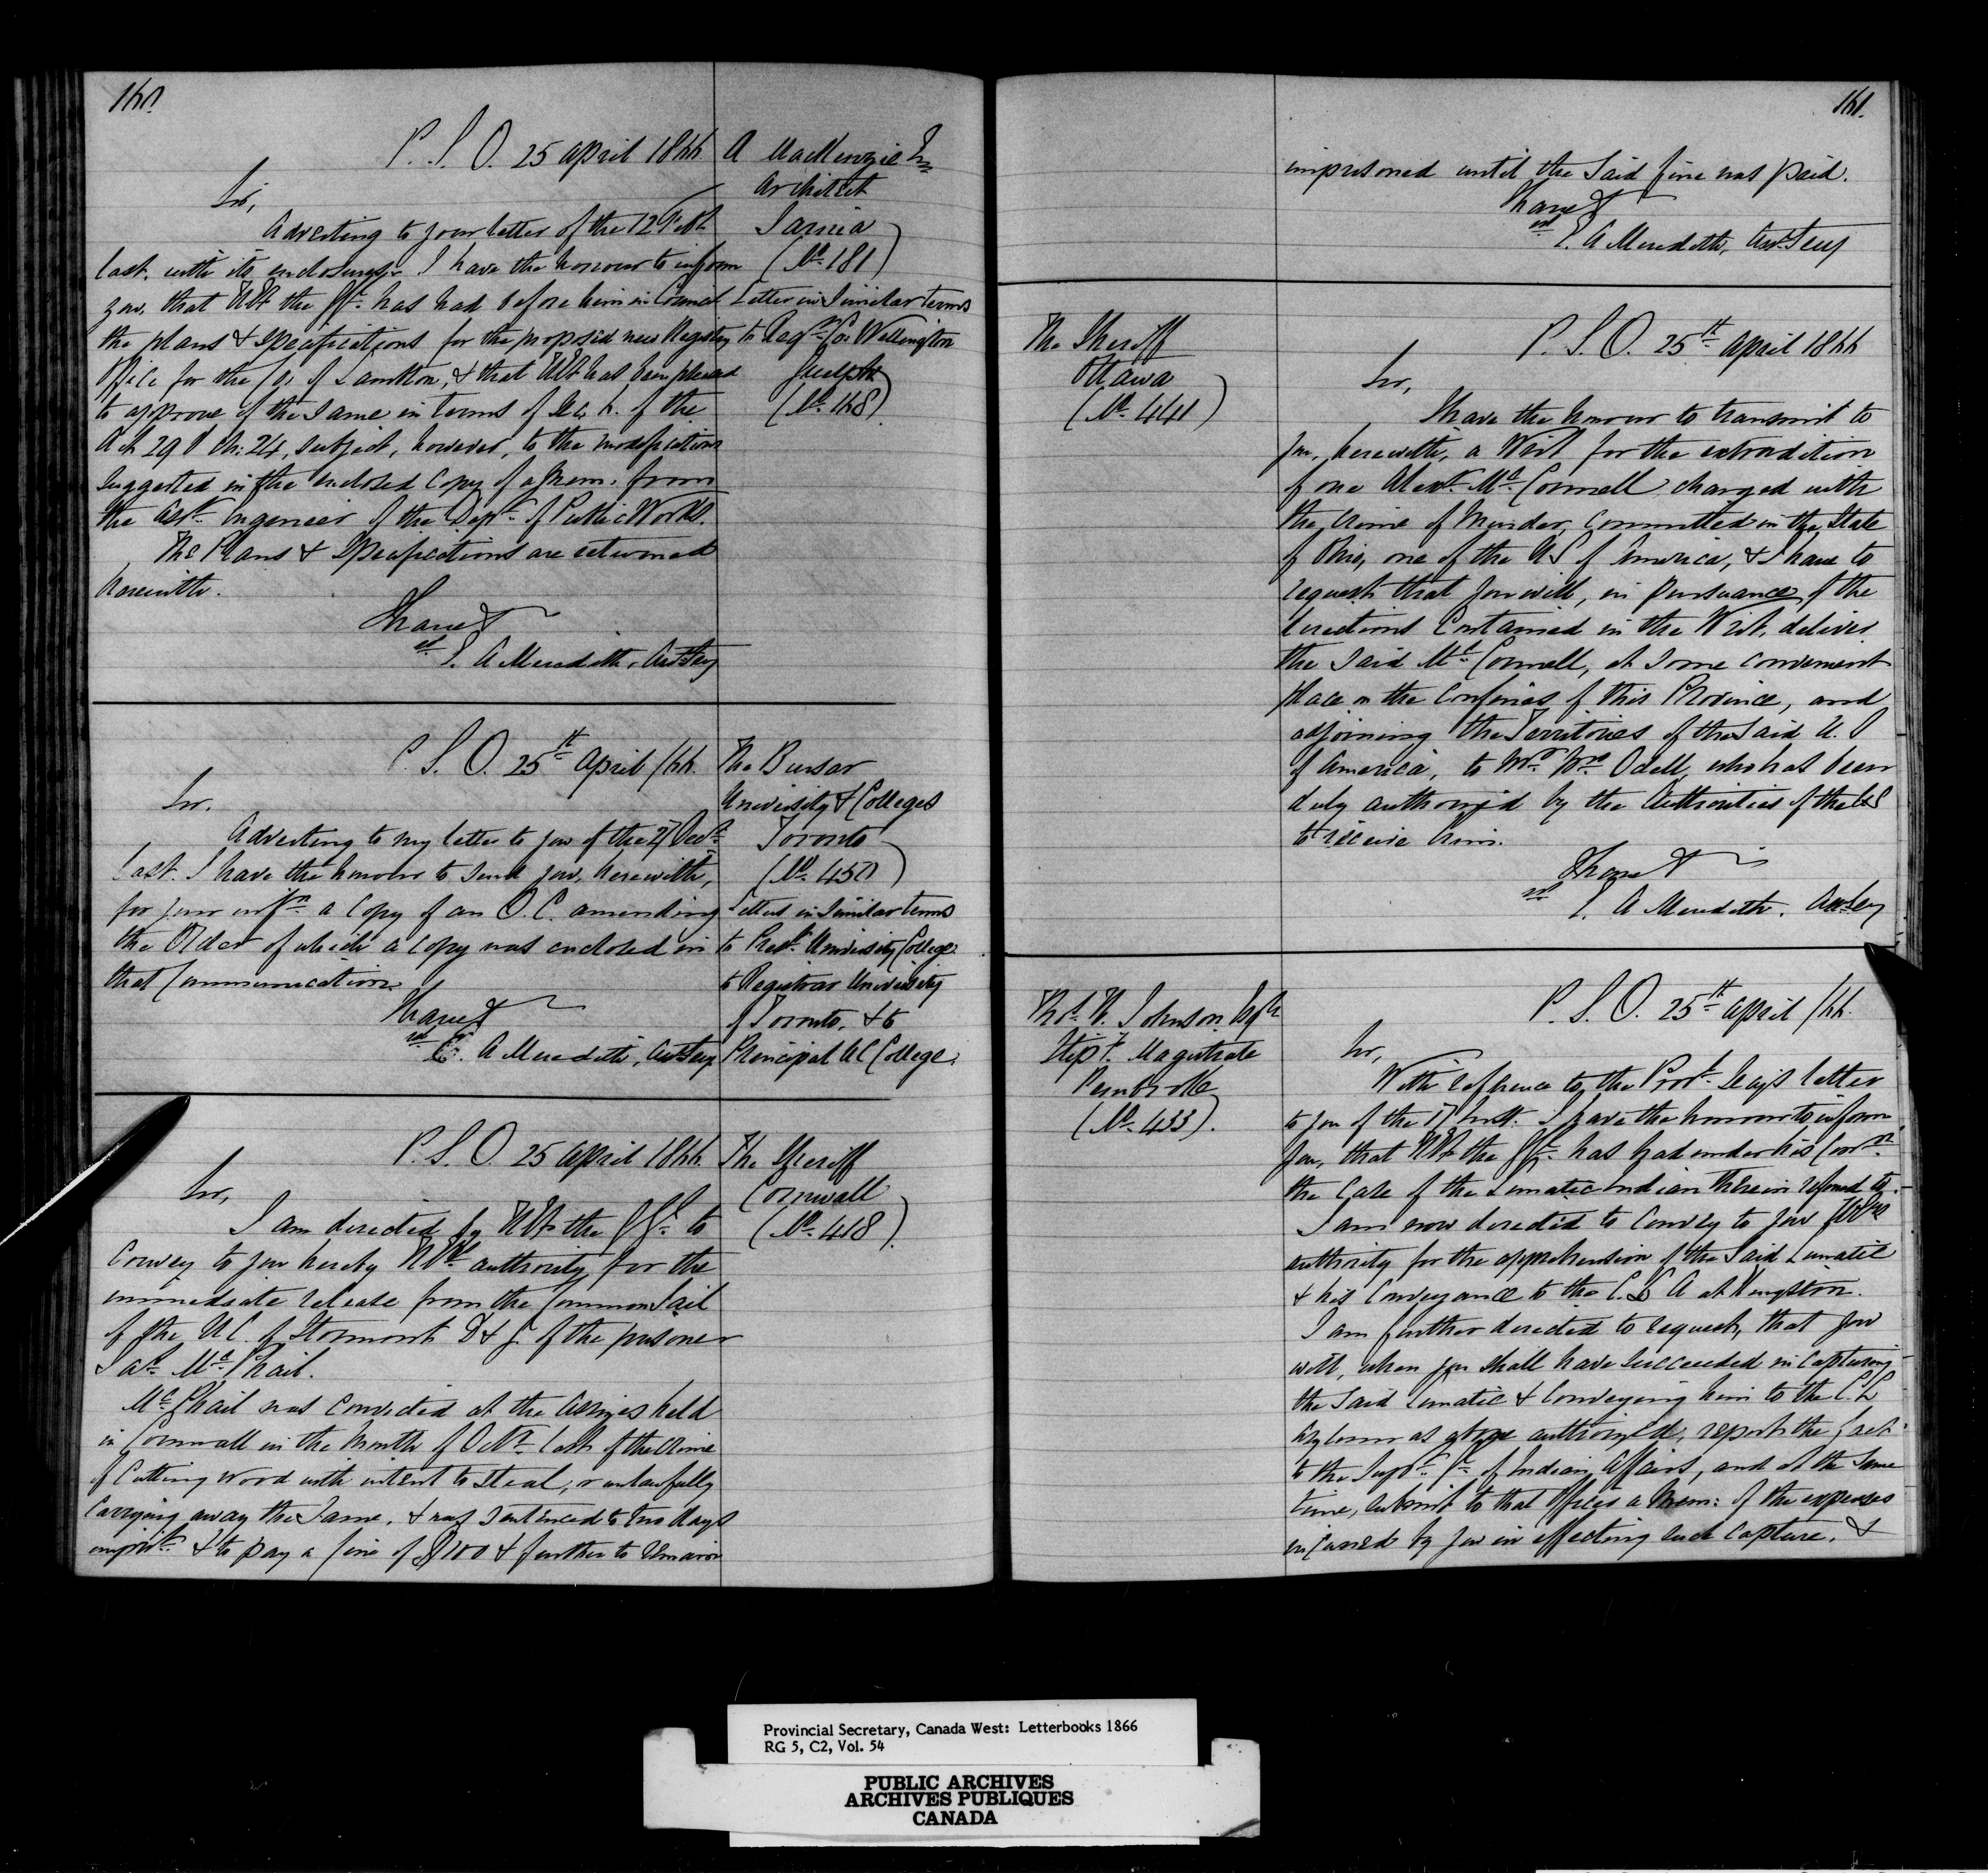 160.
P. S. O. 25 April 1866
Sir,
Adverting to your letter of the 12 Feb.
last. with its enclosures I have the honour to inform
you, that HE the GG. has had before him in Council
the plans & specifications for the proposed new Registry
Office for the Co. of Lambton, & that HE has been pleased
to approve of the same in terms of Sec. 6. of the
Act 29 V Ch: 24, subject, however, to the modifications
suggested in the enclosed Copy of a Mem. from
the Asst. Engineer of the Dept. of Public Works.
The Plans & Specifications are returned
herewith.
I have &
E. A Meredith, Asst Secy
A MacKenzie Esq
Architect
Sarnia
(No. 181)
Letter in Similar terms
to Regr. Co. Wellington
Guelph
(No. 168)
P. S. O. 25th April /66.
Sir.
Adverting to my letter to you of the 27 Decr.
last. I have the honour to send you, herewith,
for your infn. a Copy of an O. C. amending
the Order of which a copy was enclosed in
that Communication.
I have &
E. A Meredith, Asst Secy
The Bursar
University & Colleges
Toronto
(No. 450)
Letters in Similar terms
to Presdt. University College
to Registrar University
of Toronto, & to
Principal U C College.
P. S. O. 25 April 1866.
Sir,
I am directed by HE the GG. to
convey to you hereby HE's authority for the
immediate release from the Common Jail
of the U C. of Stormont D & G. of the prisoner
Jas. Mc.Phail.
Mc.Phail was convicted at the Assizes held
in Cornwall in the Month of Octr. last of the crime
of Cutting wood with intent to steal, & unlawfully
carrying away the Same, & was sentenced to two days
imprist. & to pay a fine of $100 & further to remain
The Sheriff
Cornwall
(No. 418)
161.
imprisoned until the Said fine was paid.
I have &
E. A Meredith, Asst Secy
The Sheriff
Ottawa
(No. 441)
P. S. O. 25th. April 1866
Sir,
I have the honour to transmit to
you, herewith, a Writ for the extradition
of one Alexr. Mc.Connell charged with
the crime of Murder, Committed in the State
of Ohio, one of the US of America, & I have to
request that you will, in pursuance of the
directions contained in the Writ, deliver
the Said Mc.Connell, at some convenient
place on the confines of this Province, and
adjoining the Territories of the Said U. S
of America, to Mr. Wm. Odell, who has been
duly authorized by the Authorities of the US
to receive him.
I have &
E. A Meredith. Asst Secy
Thos. W. Johnson Esqr
Stipy. Magistrate
Pembroke
(No. 433).
P. S. O. 25th. April /66.
Sir,
With reference to the Provl. Secy's letter
to you of the 17 Inst. I have the honour to inform
you, that HE the GG. has had under his Conn.
the Case of the Lunatic Indian therein referred to.
I am now directed to convey to you HE's
authority for the apprehension of the Said Lunatic
& his Conveyance to the C. L A at Kingston.
I am further directed to request, that you
will, when you shall have succeeded in capturing
the Said Lunatic & Conveying him to the C. L
Asylum as above authorized, report the fact
to the Supt. Gl. of Indian Affairs, and at the same
time, submit to that Officer a Mem: of the expenses
incurred by you in effecting such capture, &
Provincial Secretary, Canada West: Letterbooks 1866
RG 5, C2, Vol. 54
PUBLIC ARCHIVES
ARCHIVES PUBLIQUES
CANADA